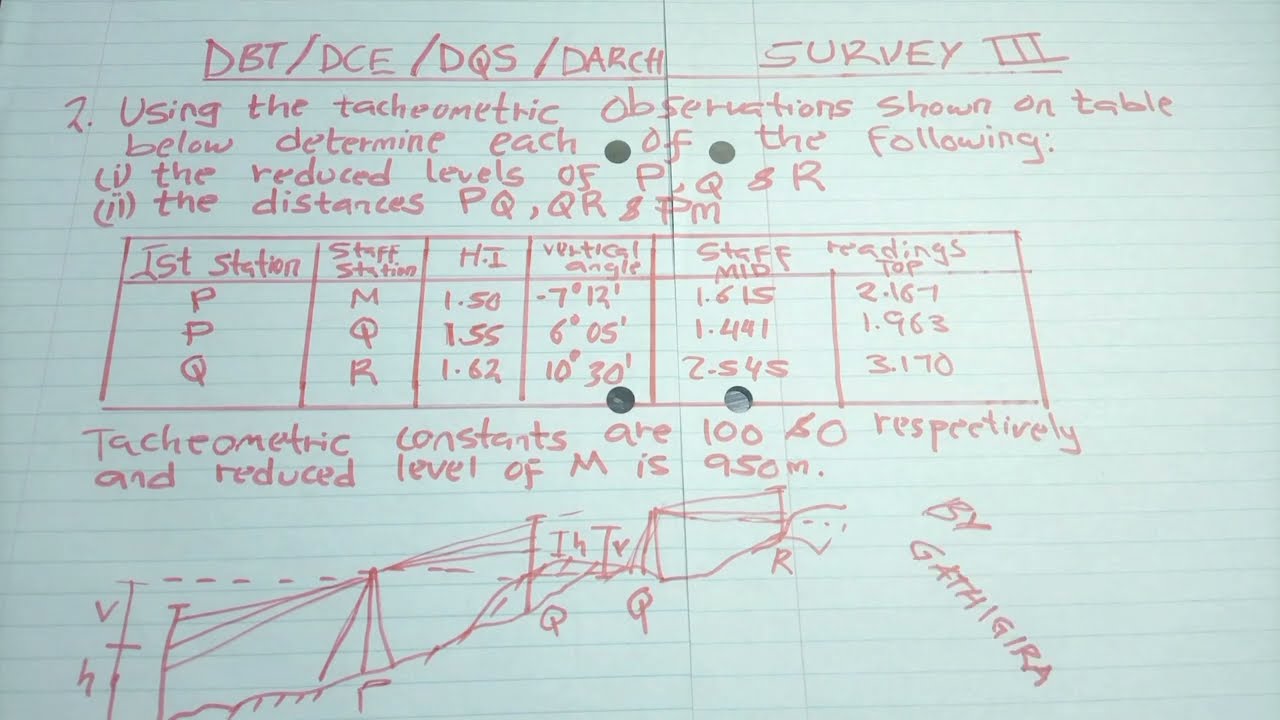 DBT/DCE/DQS/DARCH SURVEY III
2. Using the tacheometric observations shown on table
below determine each of the following:
(i) the reduced levels of P, Q & R
(ii) the distances PQ, QR & PM
Ist station Staff station H.I vertical angle Staff readings MID TOP
P M 1.50 -7°12' 1.615 2.167
P Q 1.55 6°05' 1.441 1.963
Q R 1.62 10°30' 2.545 3.170
Tacheometric constants are 100 & 0 respectively
and reduced level of M is 950m.
V
h
P
h
V
Q
Q
R
GATHIGIRA